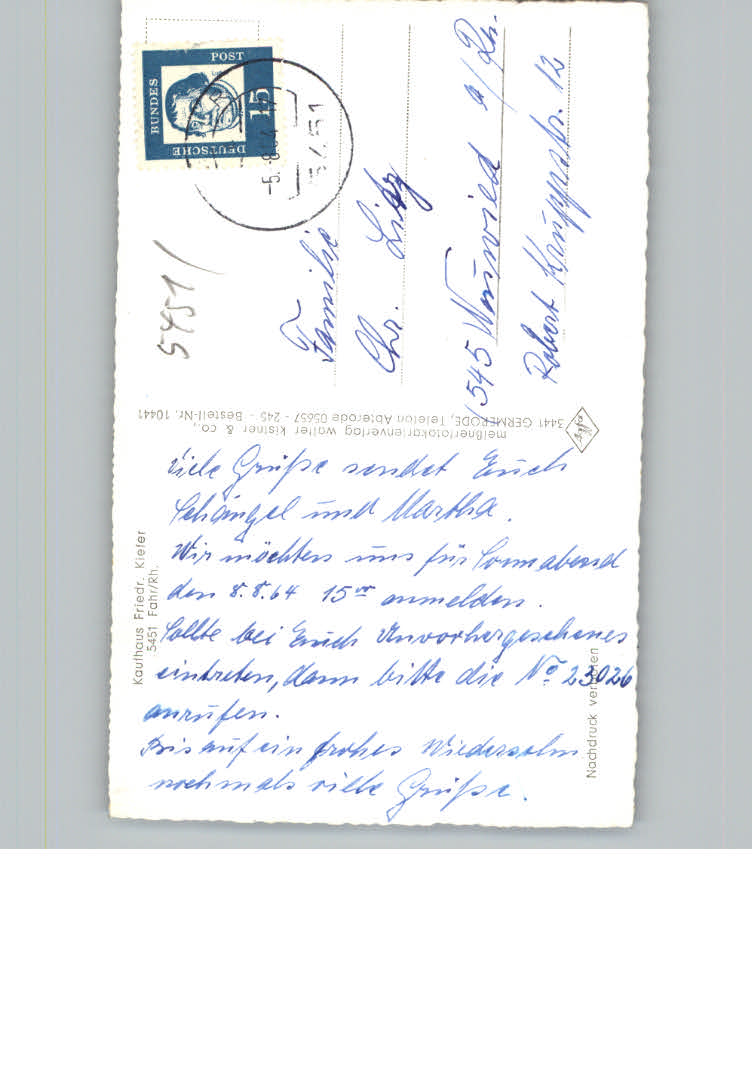 DEUTSCHE
BUNDES
POST
15
-5.-8.64-17
5451
5451/
Familie
Chr.
545 Neuwied a/Rh.
Robert Kruppstr. 12
meißnerfotokartenverlag walter kistner & co.,
3441 GERMERODE, Telefon Abterode 05657 - 245 - Bestell-Nr. 10441
Kaufhaus Friedr. Kiefer
5451 Fahr/Rh.
Viele Grüße sendet Euch
Schängel und Martha.
Wir möchten uns für Sonnabend
den 8.8.64 15 anmelden.
Sollte bei Euch Unvorhergesehenes
eintreten, dann bitte die No 23026
anrufen.
Bis auf ein frohes Wiedersehn
nochmals viele Grüße.
Nachdruck verboten